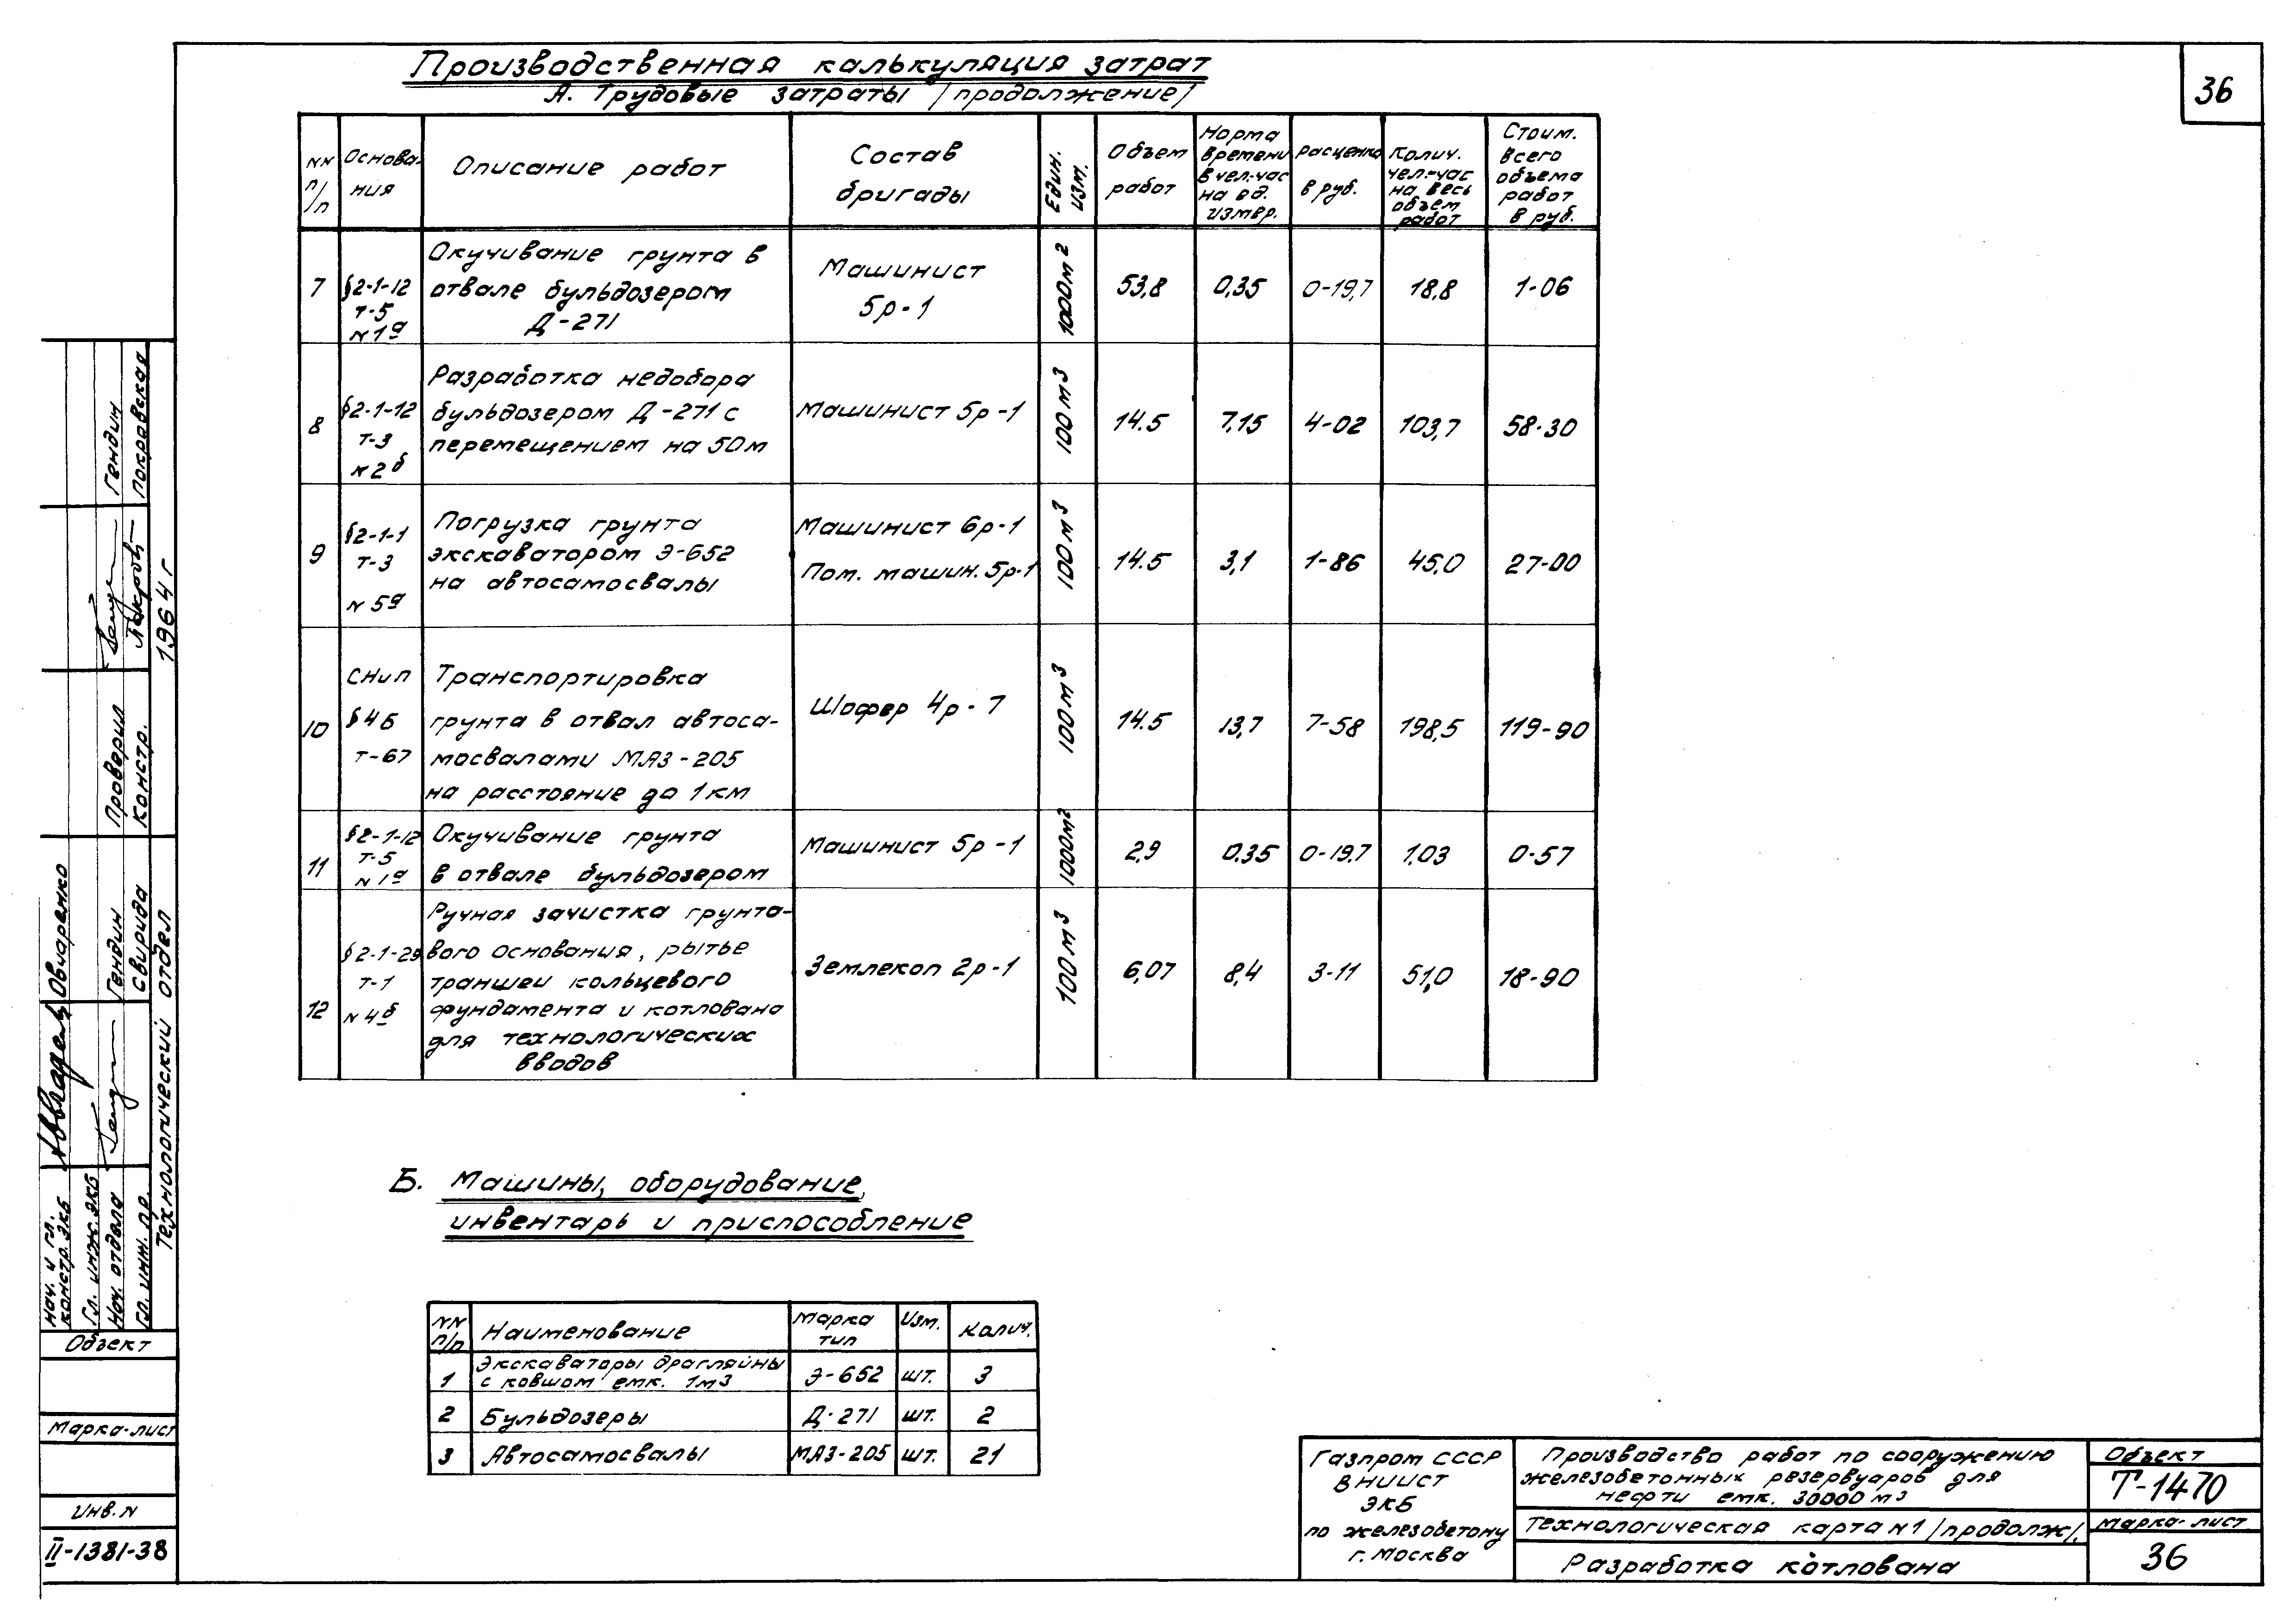 Производственная калькуляция затрат
А. Трудовые затраты /продолжение/
36
NN п/п
Основания
Описание работ
Состав бригады
Един. изм.
Объем работ
Норма времени в чел.-час на ед. измер.
Расценка в руб.
Колич. чел.-час на весь объем работ
Стоим. всего объема работ в руб.
7
§2-1-12
т-5
N1а
Окучивание грунта в
отвале бульдозером
Д-271
Машинист
5р-1
1000м2
53,8
0,35
0-19,7
18,8
1-06
8
§2-1-12
т-3
N2б
Разработка недобора
бульдозером Д-271 с
перемещением на 50м
Машинист 5р-1
100м3
14.5
7,15
4-02
103,7
58-30
9
§2-1-1
т-3
N5а
Погрузка грунта
экскаватором Э-652
на автосамосвалы
Машинист 6р-1
Пом. машин. 5р-1
100м3
14.5
3,1
1-86
45,0
27-00
10
СНиП
§4б
т-67
Транспортировка
грунта в отвал автоса-
мосвалами МАЗ-205
на расстояние до 1км
Шофер 4р-7
100м3
14.5
13,7
7-58
198,5
119-90
11
§2-1-12
т-5
N1а
Окучивание грунта
в отвале бульдозером
Машинист 5р-1
1000м2
2,9
0,35
0-19,7
1,03
0-57
12
§2-1-29
т-1
N4б
Ручная зачистка грунто-
вого основания, рытье
траншеи кольцевого
фундамента и котлована
для технологических
вводов
Землекоп 2р-1
100м3
6,07
8,4
3-11
51,0
18-90
Б. Машины, оборудование,
инвентарь и приспособление
NN п/п
Наименование
Марка тип
Изм.
Колич.
1
Экскаваторы драглайны
с ковшом емк. 1м3
Э-652
шт.
3
2
Бульдозеры
Д-271
шт.
2
3
Автосамосвалы
МАЗ-205
шт.
21
Газпром СССР
ВНИИСТ
ЭКБ
по железобетону
г. Москва
Производство работ по сооружению
железобетонных резервуаров для
нефти емк. 30000 м3
Технологическая карта N1 /продолж/.
Разработка котлована
Объект
Т-1470
Марка-лист
36
Гендин
Покравская
1964г
Проверил
Констр.
Овчаренко
Гендин
Свирида
Технологический отдел
Нач. и гл. констр. ЭКБ
Гл. инж. ЭКБ
Нач. отдела
Гл. инж. пр.
Объект
Марка-лист
Инв. N
II-1381-38